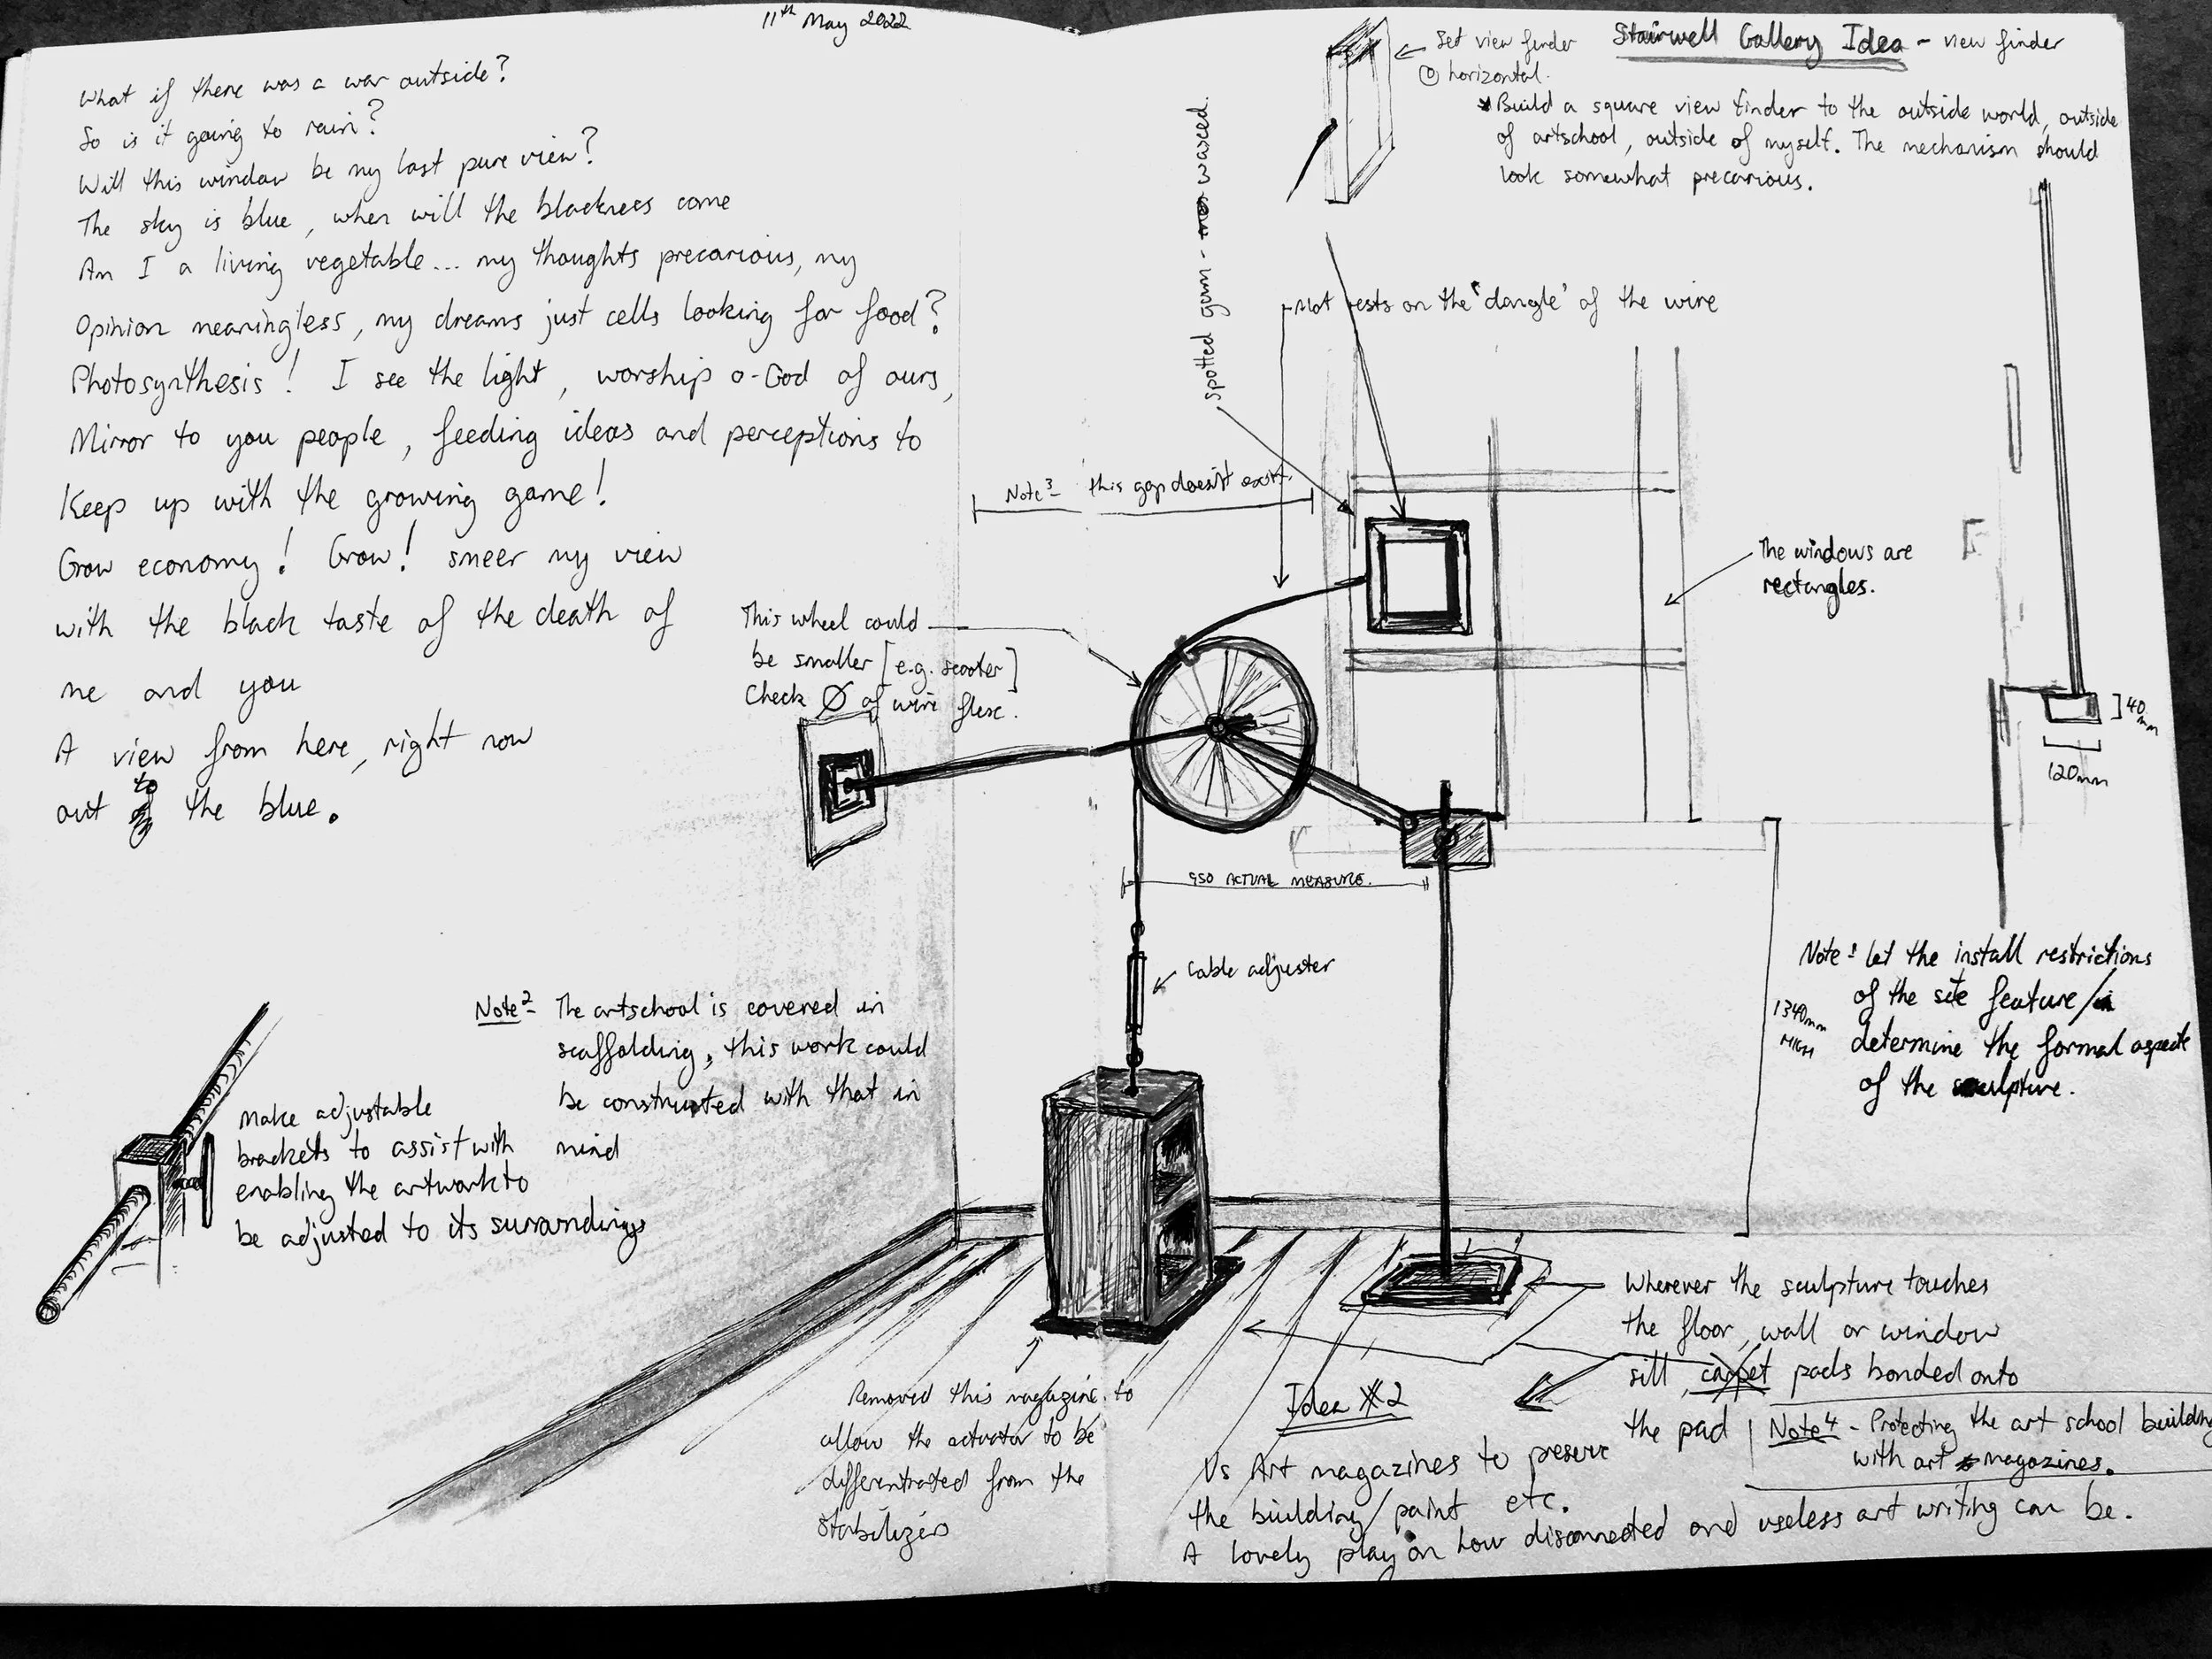 11th May 2022
What if there was a war outside?
So is it going to rain?
Will this window be my last pure view?
The sky is blue, when will the blackness come
Am I a living vegetable... my thoughts precarious, my
Opinion meaningless, my dreams just cells looking for food?
Photosynthesis! I see the light, worship o-God of ours,
Mirror to you people, feeding ideas and perceptions to
Keep up with the growing game!
Grow economy! Grow! smeer my view
with the black taste of the death of
me and you
A view from here, right now
out to the blue.
This wheel could
be smaller [e.g. scooter]
Check Ø of wire flex.
Note 2- The artschool is covered in
scaffolding, this work could
be constructed with that in
mind
Make adjustable
brackets to assist with
enabling the artwork to
be adjusted to its surrandings
Removed this magazine to
allow the actuator to be
differentiated from the
Stabilizers
Stairwell Gallery Idea - view finder
Set view finder
@ horizontal.
* Build a square view finder to the outside world, outside
of artschool, outside of myself. The mechanism should
look somewhat precarious.
spotted gum - waxed.
Not rests on the 'dangle' of the wire
Note 3- this gap doesn't exist.
The windows are
rectangles.
40mm
120mm
950 ACTUAL MEASURE.
Cable adjuster
1340mm
HIGH
Note: let the install restrictions
of the site feature/
determine the formal aspects
of the sculpture.
Wherever the sculpture touches
the floor, wall or window
sill, carpet pads bonded onto
the pad
Note 4 - Protecting the art school building
with art magazines.
Idea #2
Vs Art magazines to preserve
the building/paint etc.
A lovely play on how disconnected and useless art writing can be.